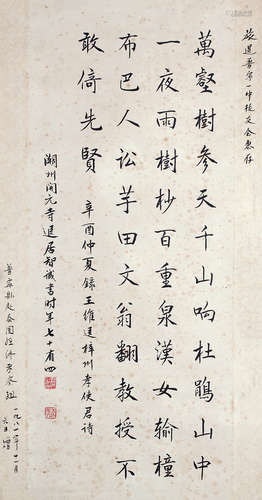 旅暹普宁一中校友会惠存
萬壑樹參天千山响杜鵑山中
一夜雨樹杪百重泉漢女輸橦
布巴人訟芋田文翁翻教授不
敢倚先賢
辛酉仲夏錄王維送梓州李使君詩
潮州開元寺退居智誠書时年七十有四
一九八一年十一月
六日 增